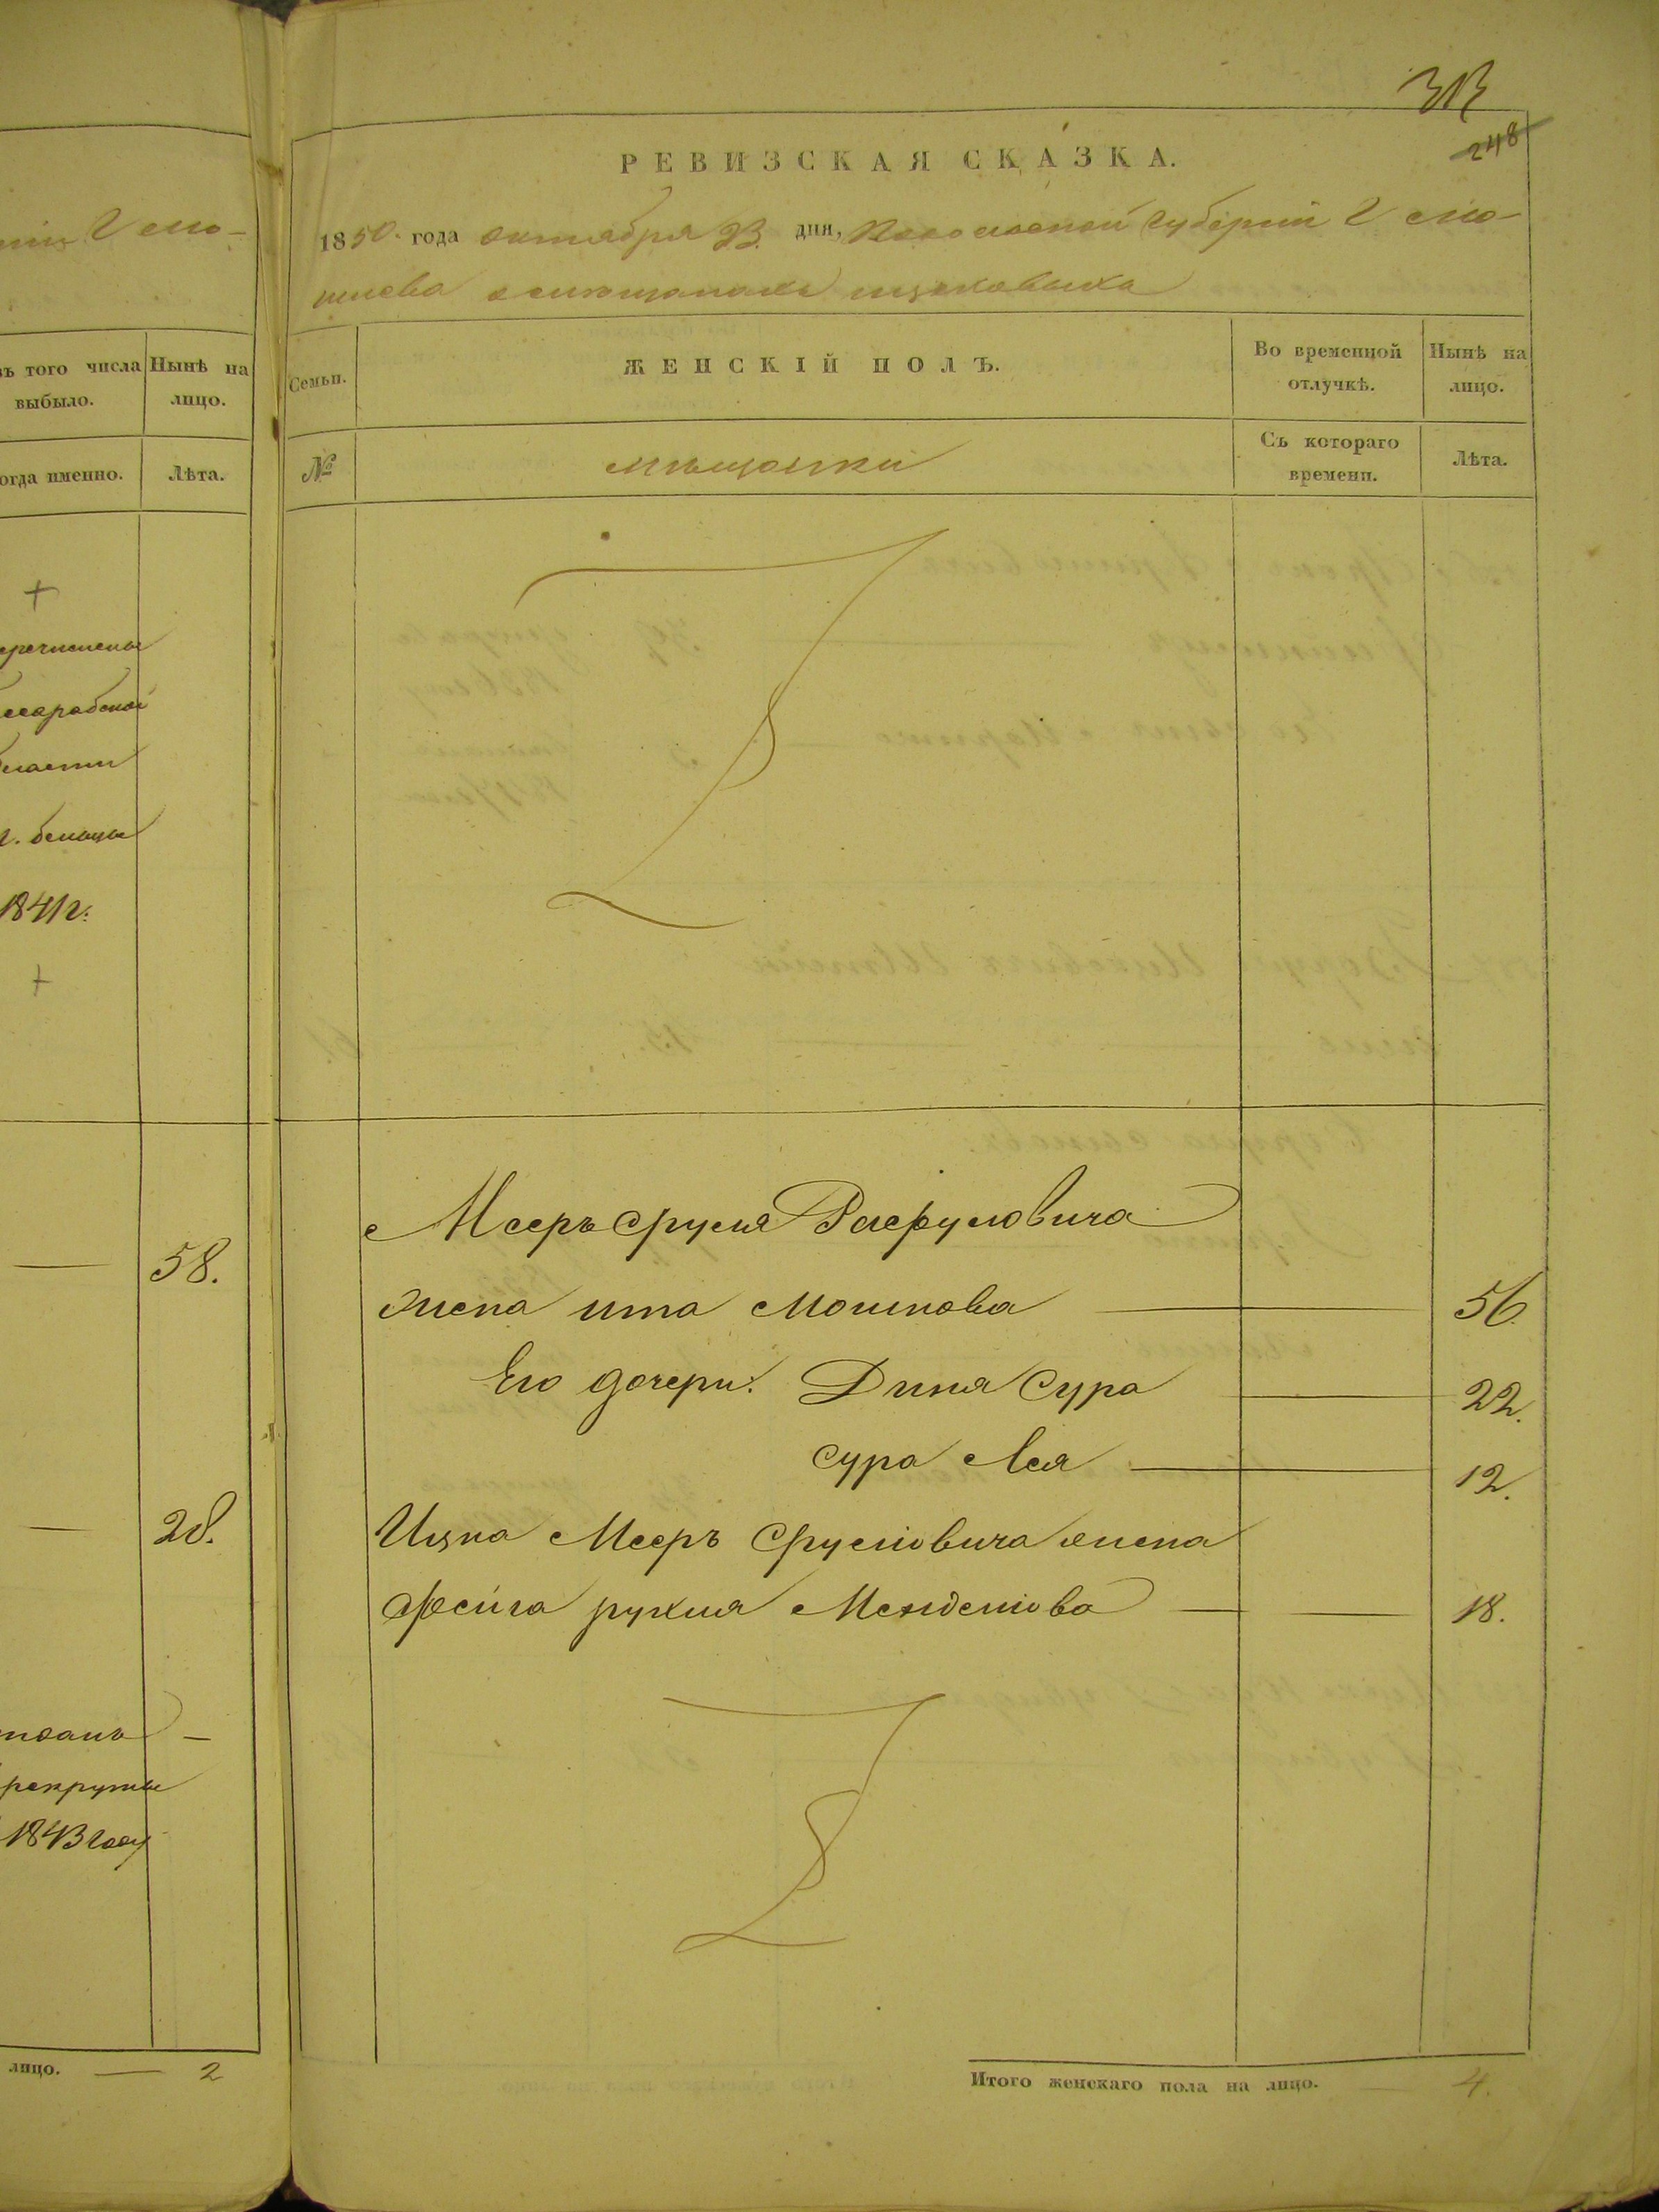 313
248
РЕВИЗСКАЯ СКАЗКА.
1850. года октября 23. дня, Подольской губерніи г. Мо-
гилева о мещанахъ
Семьи.
ЖЕНСКІЙ ПОЛЪ.
Во временной отлучкѣ.
Нынѣ на лицо.
№
мѣщанки
Съ котораго времени.
Лѣта.
Мееръ Сруля Рафуловича
жена ита Мошкова — 56.
Его дочери: Диня Сура — 22.
Сура Лея — 12.
Ицка Мееръ Срулiовича жена
Фейга рухля Менделiова — 18.
Итого женскаго пола на лицо. — 4.
г. Мо-
зъ того числа выбыло.
Нынѣ на лицо.
огда именно.
Лѣта.
еречислены
ссарабской
бласти
г. бельцы
1841 г.
— 58.
— 28.
рекруты
1843 году
лицо. — 2